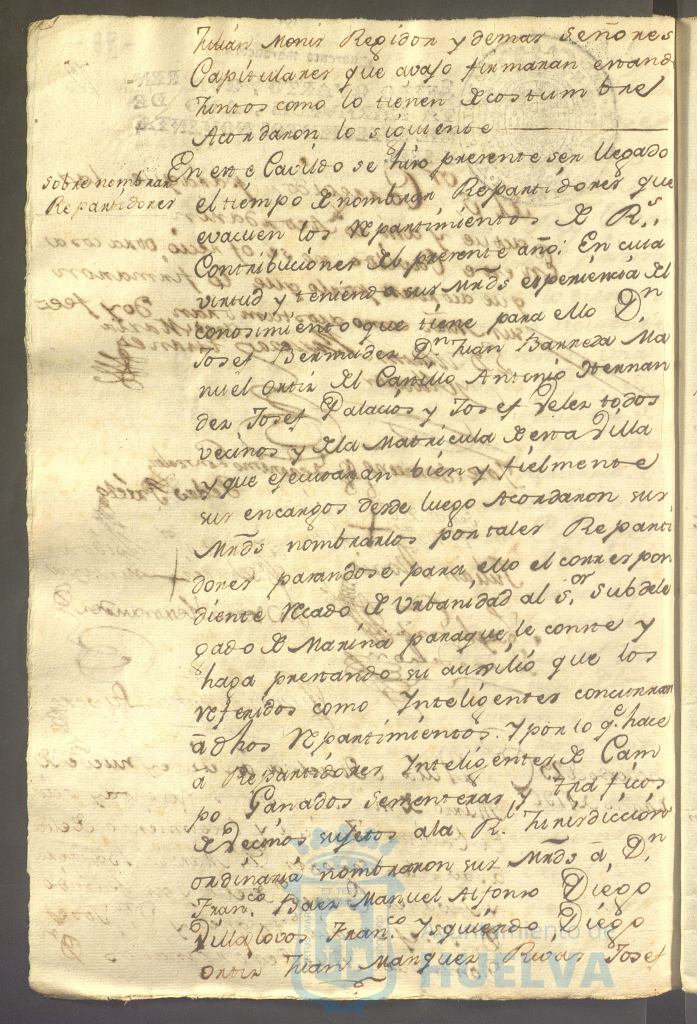 Julián Monis Regidor y demas Señores
Capitulares que avajo firmaran estand
Juntos como lo tienen de costumbre
Acordaron lo siguiente
Sobre nombrar
Repartidores
En este Cavildo se hizo presente ser llegado
el tiempo de nombrar Repartidores que
evacuen los repartimientos de R.s
Contribuciones del presente año: En cuia
virtud y teniendo sus Mrds esperiencia del
conosimiento que tiene para ello D.n
Josef Bermudez D.n Juan Barreda Ma
nuel Ortiz del Castillo Antonio Hernan
dez Josef Palacios y Josef Velez todos
vecinos y de la Matricula de esta Villa
y que efectuaran bien y fielmente
sus encargos desde luego Acordaron sus
Mrds nombrarlos por tales Reparti
dores parandose para ello el correspon
diente recado de Urbanidad al S.or Subdele
gado de Marina paraque le conste y
haga prestando su auxilio que los
referidos como Inteligentes concurran
a dhos repartimientos. Y por lo q.e hace
a Repartidores Inteligentes de Cam
po Ganados Sementeras y traficos
de Vecinos sujetos a la R.l Jurisdiccion
ordinaria nombraron sus Mrds a D.n
Fran.co Baez Manuel Alfonso Diego
Villalovos Fran.co Ysquierdo Diego
Ortiz Juan Marquez Rioxs Josef
Ayuntamiento de
HUELVA